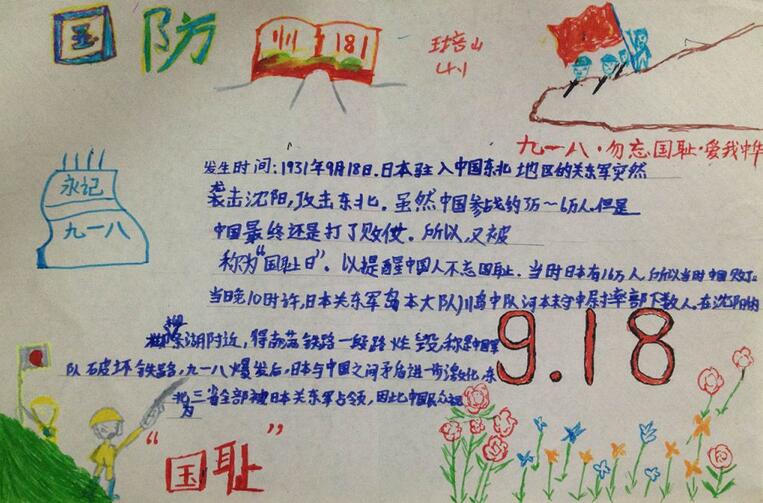 国防
1931
培山
九一八·勿忘国耻·爱我中华
永记
九一八
发生时间:1931年9月18日.日本驻入中国东北地区的关东军突然
袭击沈阳,攻击东北.虽然中国参战约3万~6万人.但是
中国最终还是打了败仗.所以,又被
称为“国耻日”.以提醒中国人不忘国耻.当时日本有16万人,所以当时中国败了.
当晚10时许,日本关东军岛本大队川岛中队河本末守中尉率部下数人.在沈阳的
柳条湖附近,将南满铁路一段路炸毁,称是中国军
队破坏铁路,九一八爆发后,日本与中国之间矛盾进一步激化,东
北三省全部被日本关东军占领,因此中国民众视
为
“国耻”
9.18